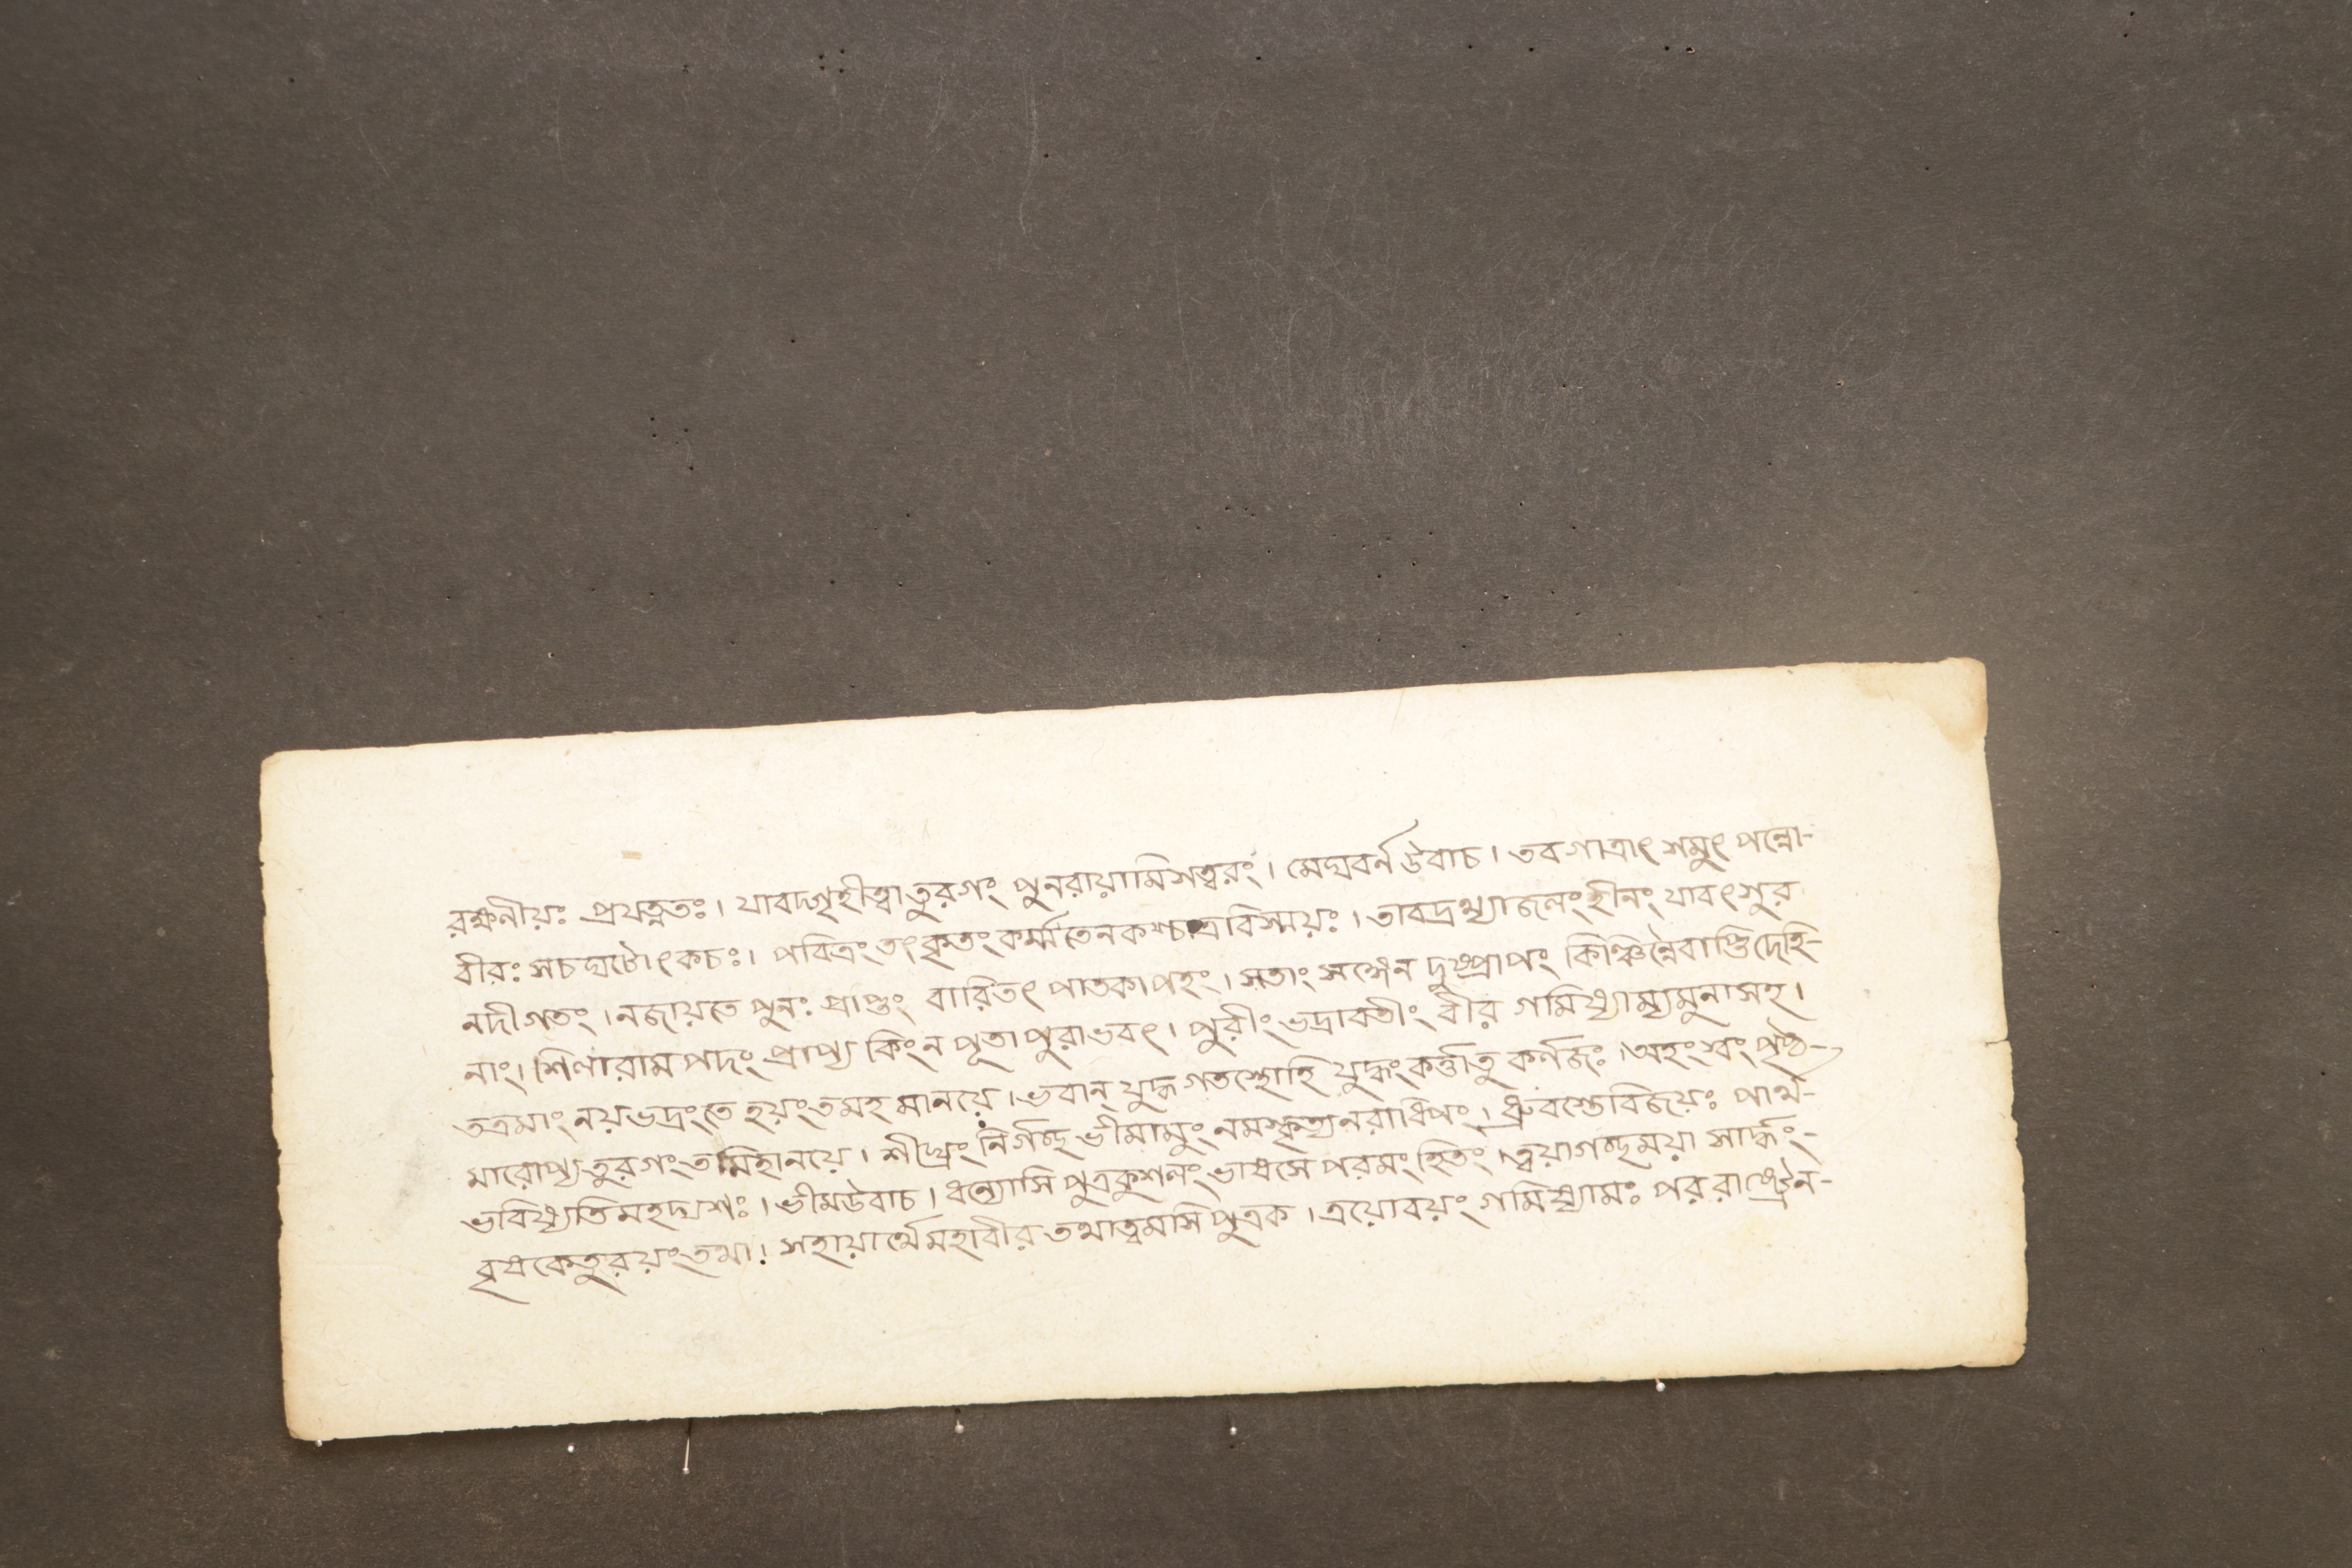 রক্ষনীয়ঃ প্রযত্নতঃ। যাবদ্গৃহীত্বাতুরগং পুনরায়ামিসত্বরং। মেঘবর্ন উবাচ। তবগাত্রাৎ শমুৎ পন্নো-
বীরঃ সচঘটোৎকচঃ। পবিত্রং তৎকৃতং কর্ম্ম তেনকশ্চাত্রবিস্ময়ঃ। তাবদ্রথ্যাজলংহীনং যাবৎসুর
নদীগতং। নজায়তে পুনঃ প্রাপ্তং বারিতৎ পাতকাপহং। সতাং সঙ্গেন দুষ্প্রাপং কিঞ্চিন্নৈবাস্তিদেহি-
নাং। শিলারামপদং প্রাপ্য কিংন পূতা পুরাভবৎ। পুরীং ভদ্রাবতীং বীর গমিষ্যাম্যমুনাসহ।
তত্রমাং নয়ভদ্রংতে হয়ংতমহ মানয়ে। ভবান্ যুদ্ধগতস্থোহি যুদ্ধংকর্ত্তাতু কর্ণজঃ। অহংখং পৃষ্ঠ-
মারোপ্য তুরগং তমিহানয়ে। শীঘ্রং নির্গচ্ছ ভীমামুং নমস্কৃত্যনরাধিপং। ধ্রুবস্তেবিজয়ঃ পার্থ-
ভবিষ্যতিমহদ্যশঃ। ভীমউবাচ। ধন্যোসি পুত্রকুশলং ভাষসে পরমং হিতং। ত্বয়াগচ্ছময়া সার্দ্ধং-
বৃষকেতুরয়ংতথা। সহায়ার্থেমহাবীর তথাত্বমসি পুত্রক। ত্রয়োবয়ং গমিষ্যামঃ পররাষ্ট্রেন-